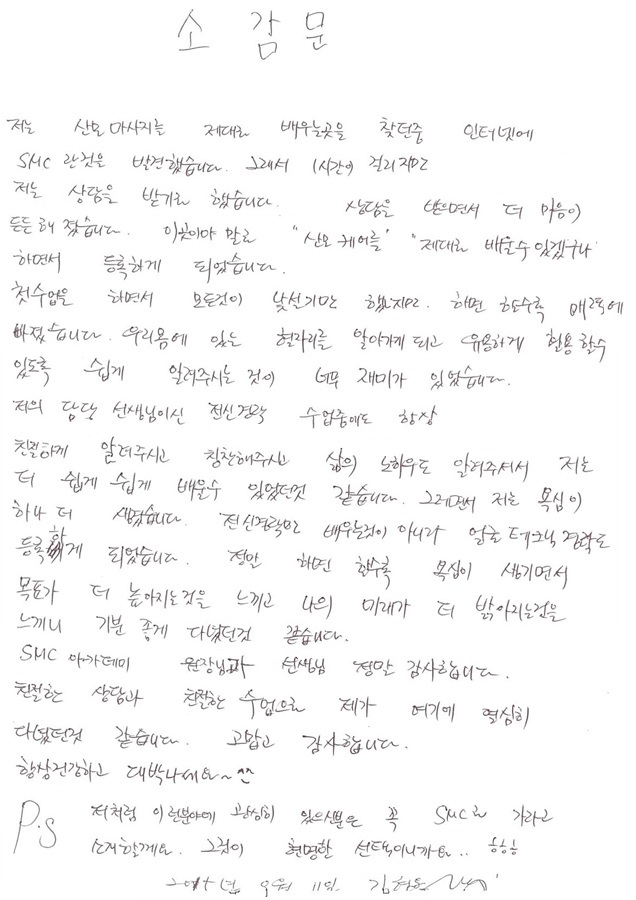 소 감 문
저는 산모 마사지를 제대로 배우는곳을 찾던중 인터넷에
SMC 란것을 발견했습니다. 그래서 1시간이 걸리지만
저는 상담을 받기로 했습니다. 상담을 받으면서 더 마음이
든든해 졌습니다. 이곳이야 말로 "산모 케어를" "제대로 배울수 있겠구나
하면서 등록하게 되었습니다.
첫수업을 하면서 모든것이 낯설기만 했지만. 하면 할수록 매력에
빠졌습니다. 우리몸에 있는 혈자리를 알아가게 되고 유용하게 활용할수
있도록 쉽게 알려주시는 것이 너무 재미가 있었습니다.
저의 담당 선생님이신 전신경락 수업중에도 항상
친절하게 알려주시고 칭찬해주시고 삶의 노하우도 알려주셔서 저는
더 쉽게 쉽게 배울수 있었던것 같습니다. 그러면서 저는 욕심이
하나 더 생겼습니다. 전신경락만 배우는것이 아니라 얼굴 테크닉 경락도
등록하게 되었습니다. 정말 하면 할수록 욕심이 생기면서
목표가 더 높아지는것을 느끼고 나의 미래가 더 밝아지는것을
느끼니 기분 좋게 다녔던것 같습니다.
SMC 아카데미 원장님과 선생님 정말 감사합니다.
친절한 상담과 친절한 수업으로 제가 여기에 열심히
다녔던것 같습니다. 고맙고 감사합니다.
항상건강하고 대박나세요~^^
P.S 저처럼 이런분야에 관심이 있으신분은 꼭 SMC로 가라고
소개할게요. 그것이 현명한 선택이니까요.. ㅎㅎㅎ
년 9월 11일.